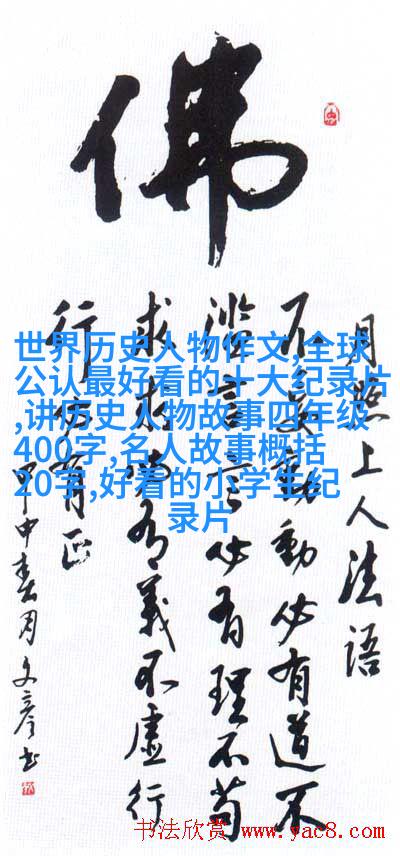 佛
月照上人法语
不妄動動必有道不
滥言言必有理不苟
求求必有義不虚行
行必有正
甲申春月文彦书
世界历史人物作文,全球
公认最好看的十大纪录片
,讲历史人物故事四年级
400字,名人故事概括
20字,好看的小学生纪
录片
书法欣赏 www.yac8.com